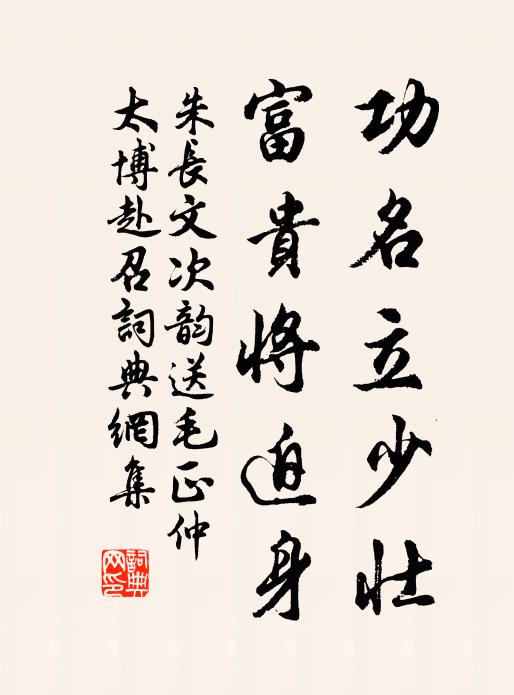 功名立少壯
富貴將迫身
朱長文次韵送毛正仲
太博赴召詞典網集
詞典网印